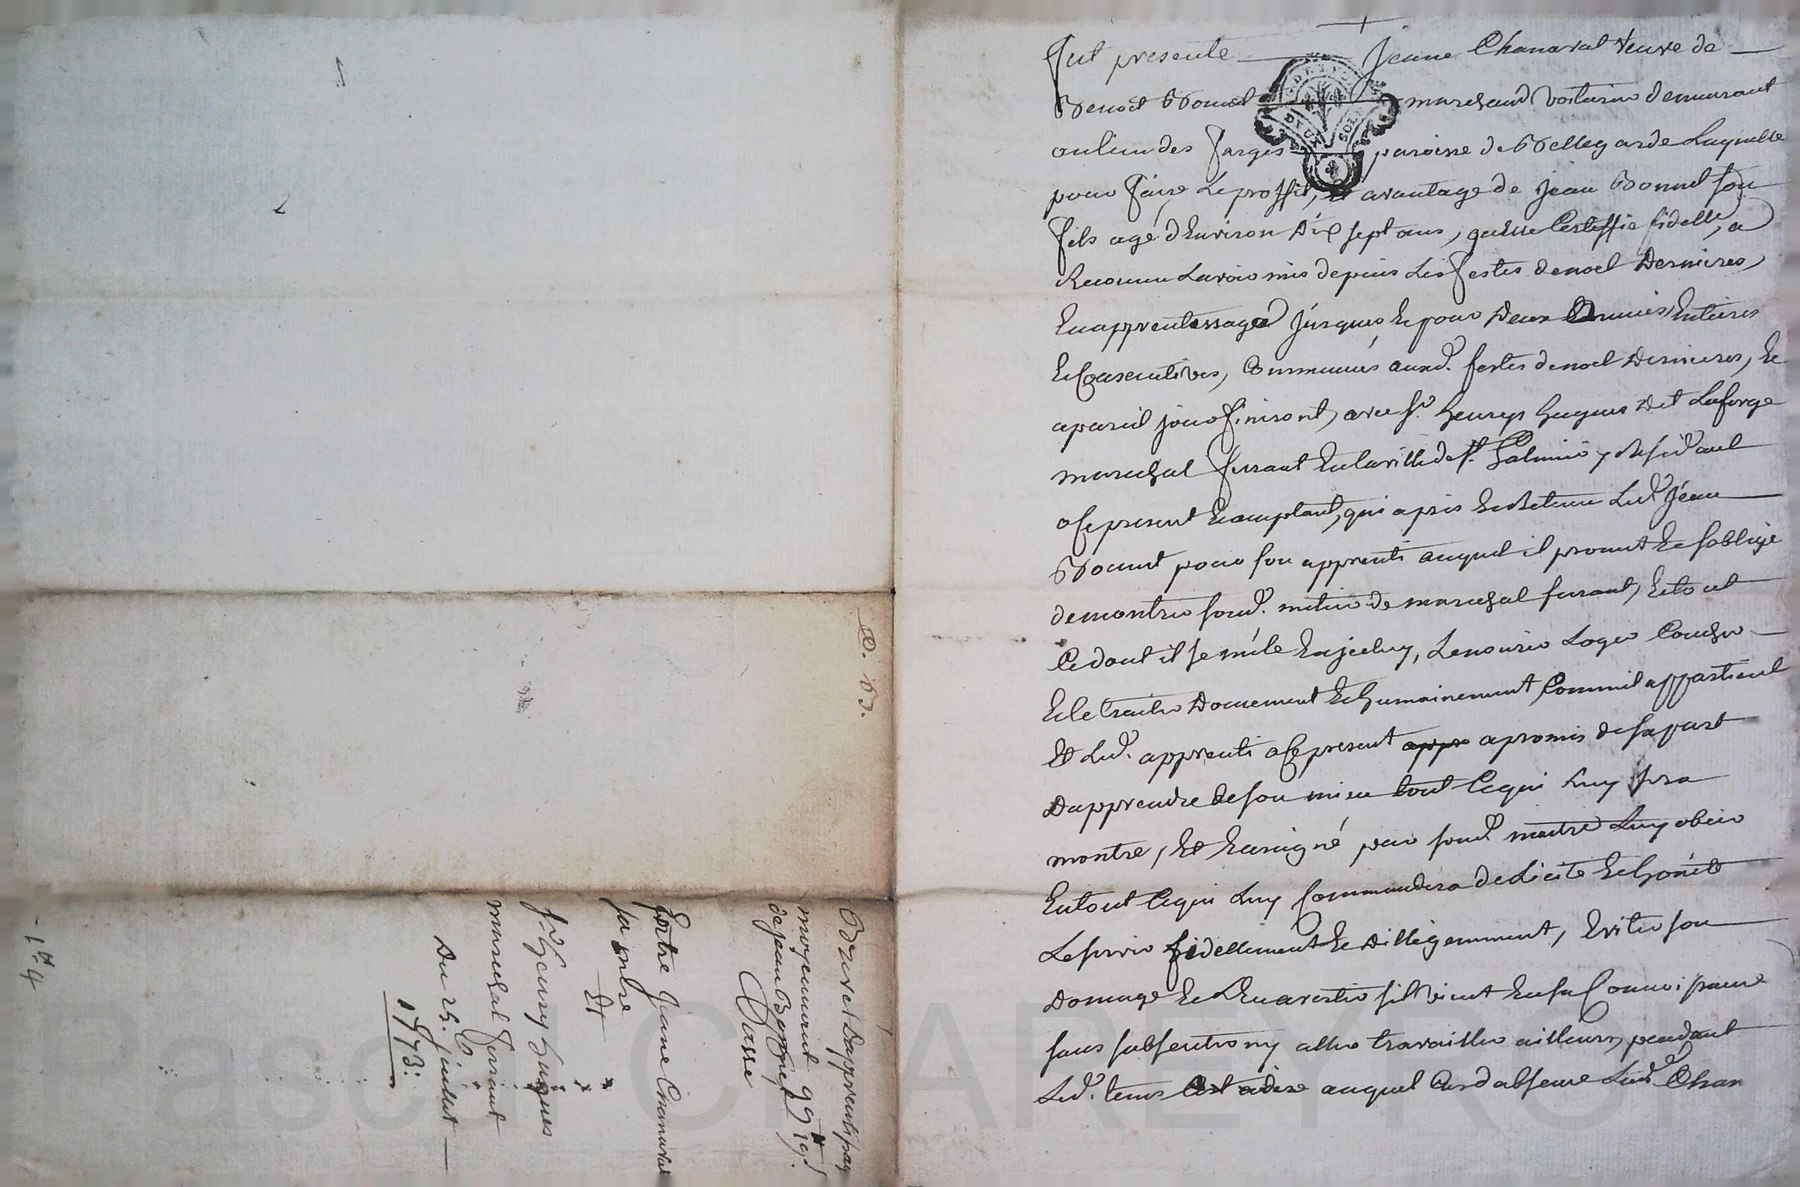 Fut presente Jeanne Chanavat veuve de
Benoit Bonnet marchand voiturier demeurant
au lieu des farges paroisse de Bellegarde Laquelle
pour faire Le proffit, et avantage de jean Bonnet son
fils agé d'Environ Dix sept ans, quelle Certiffie fidelle, a
Reconnu Lavoir mis depuis Les festes de noel Dernieres,
En apprentissage jusques Et pour Deux Années Entieres
Et Consecutives, Commencées auxd. festes de noel Dernieres, Et
a pareil jour finiront, avec Sr. heurys hugues dit Laforge
marechal ferrant En la ville de St. Galmier y Residant
ase present Et acceptant, qui a pris Et Retenu Led. jean
Bonnet pour son apprenti auquel il promet Et soblige
de montrer soud. metier de marechal ferrant, Et tout
Ce dont il se mêle En jceluy, Le nourir Loger Coucher
Et Le traiter Doucement Et humainement, Comm'il appartient
Et Led. apprenti ase present appr a promis de sa part
Dapprendre de son mieu tout Ce qui Luy sera
montré, Et Ensigné par sond. maitre Luy obeir
En tout Ce qui Luy Commandera de Licite Et honéte
Le servir fidellement Et Dilligemment, Eviter son
Domage Et Len avertir s'il vient En sa Connoissance
sans sabsenter ny aller travailler ailleurs, pendant
Led. tems auquel Cas d'absence Lad. Chan
Brevet Dapprentissage
moyennant 99tt 19s.
de jean Bonnet
Entre Jeanne Chanavat
sa mère
Et
Sr. heurys hugues
marechal ferrant
Du 25. juillet
1773:
CHAREYRON